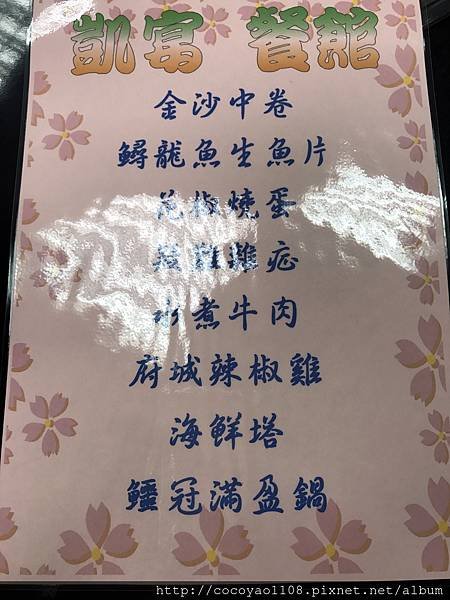 凱富 餐館
金沙中卷
鱘龍魚生魚片
花椒燒蛋
雞
水煮牛肉
府城辣椒雞
海鮮塔
鱷冠滿盈鍋
http://cocoyao1108.pixnet.net/album